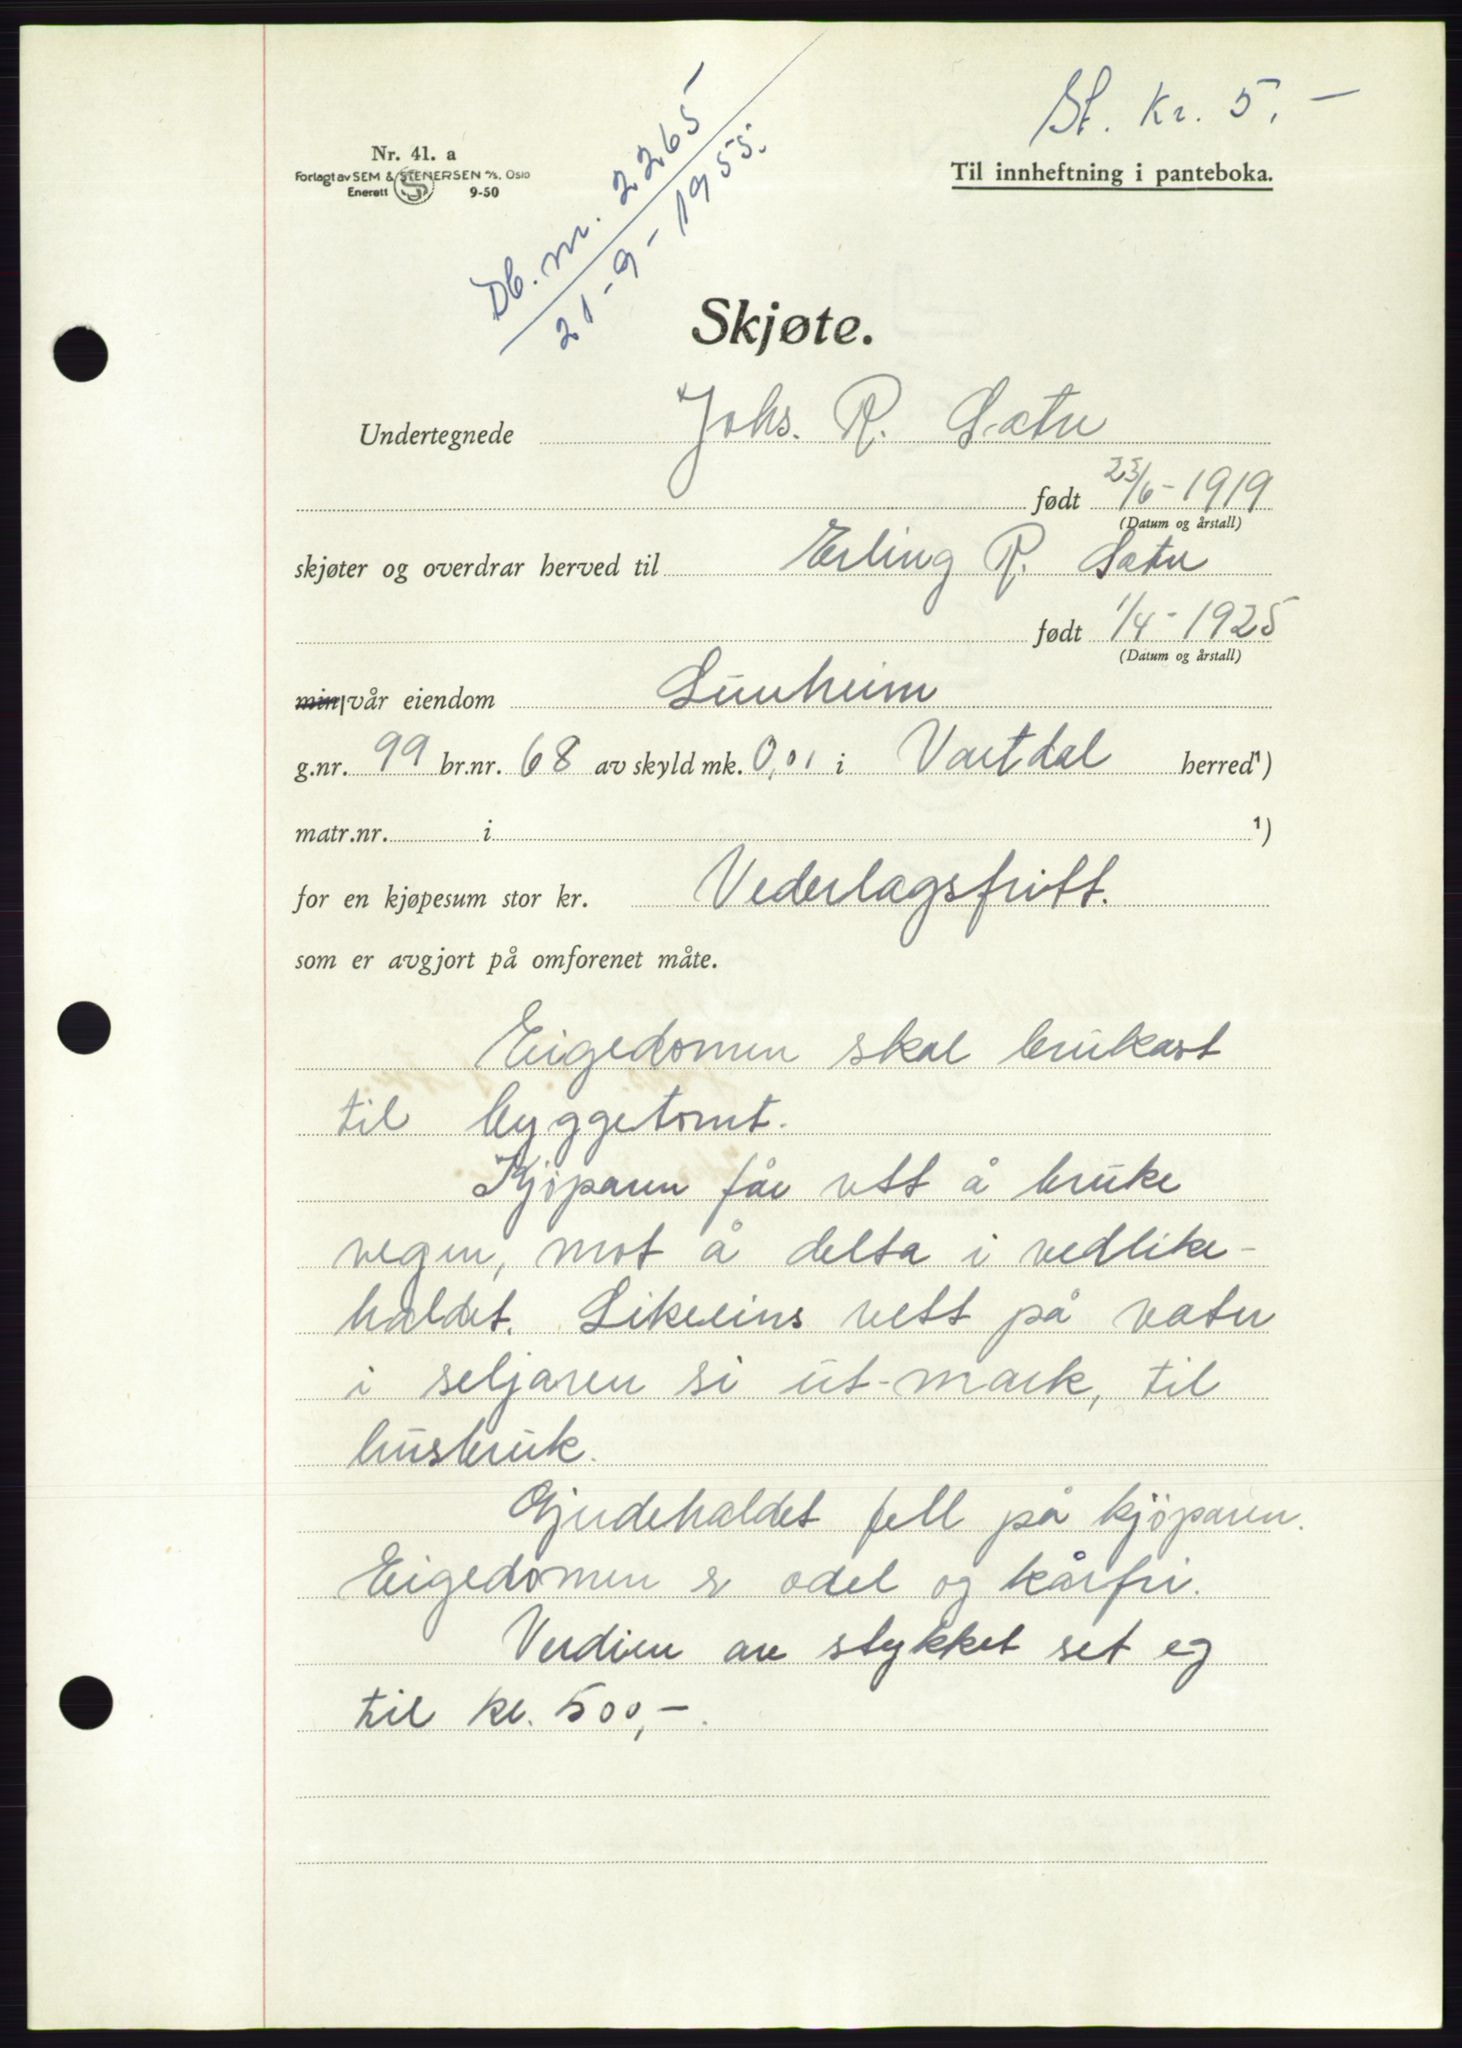 St. Kr. 5,-
Nr. 41. a
Forlagt av SEM & STENERSEN A/S, Oslo
Enerett S 9-50
Til innheftning i panteboka.
Db. nr. 2265
21-9-1955.
Skjøte.
Undertegnede Johs. R. Sætre
født 23/6-1919
(Datum og årstall)
skjøter og overdrar herved til Erling R. Sætre
født 1/4-1925
(Datum og årstall)
min/vår eiendom
g.nr. 99 br.nr. 68 av skyld mk. 0,01 i Vartdal herred ¹)
matr.nr. i ¹)
for en kjøpesum stor kr. Vederlagsfritt.
som er avgjort på omforenet måte.
Eigedomen skal brukast
til byggetomt.
Kjöparen får rett å bruke
vegen, mot å delta i vedlike-
haldet. Likeeins rett på vatn
i seljaren si ut-mark, til
husbruk.
Gjerdehaldet fell på kjöparen.
Eigedomen er odel og kårfri.
Verdien av stykket set eg
til kr. 500,-.